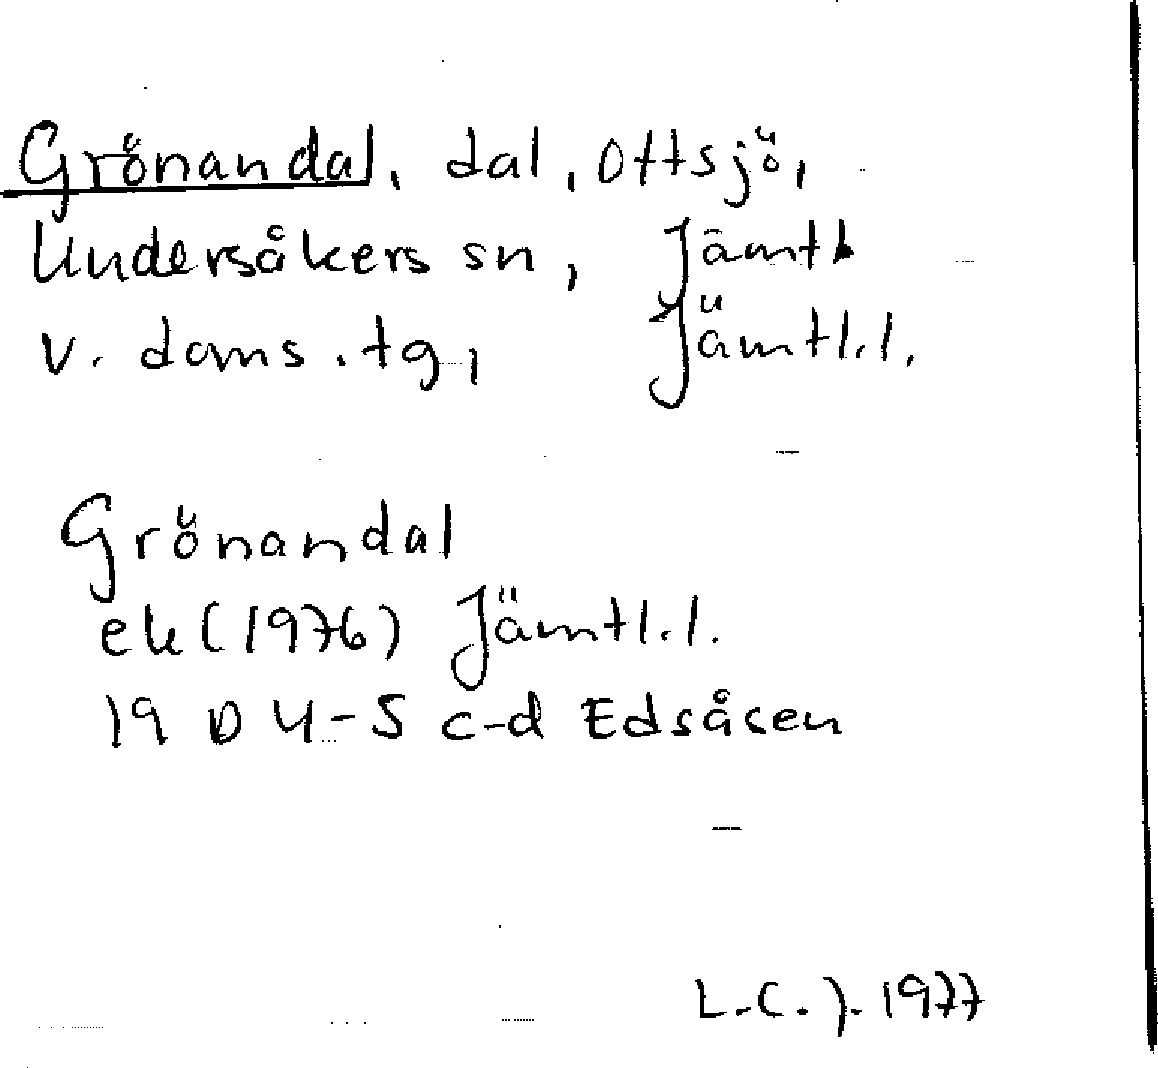 Grönandal, dal, Ottsjö,
Undersåkers sn, Jämtl
v. doms. tg, Jämtl.l.
Grönandal
ek (1976) Jämtl.l.
19 D 4-5 c-d Edsåsen
L.C.J. 1977